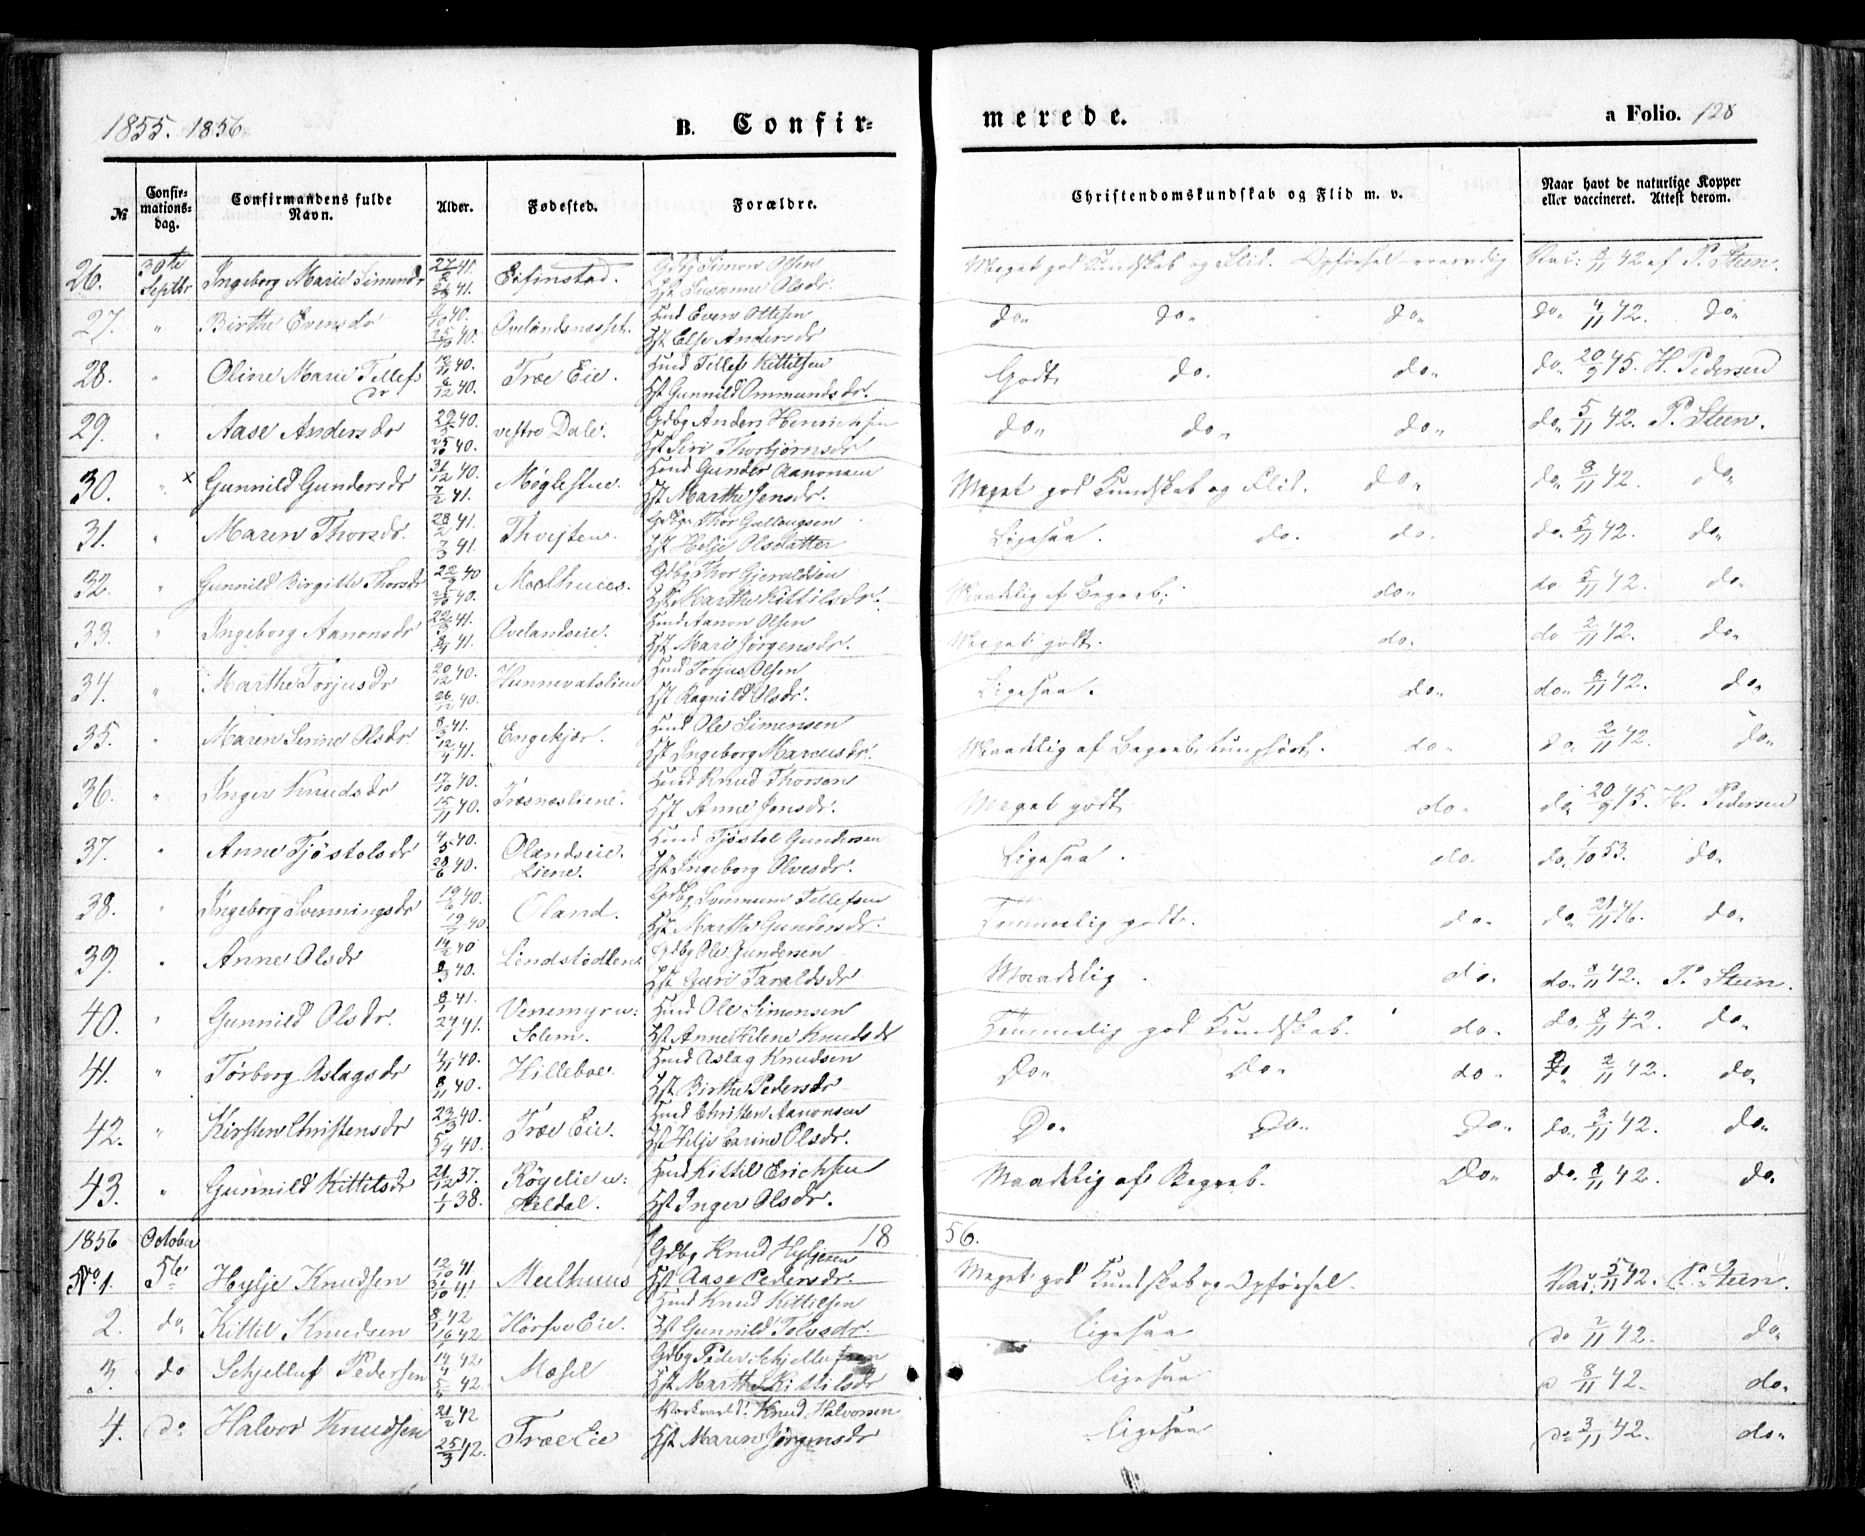 1855. 1856.
B. Confir-
merede.
a Folio. 128
№
Confir-
mations-
dag.
Confirmandens fulde
Navn.
Alder.
Fødested.
Forældre.
Christendomskundskab og Flid m. v.
Naar havt de naturlige Kopper
eller vaccineret. Attest derom.
26. 30te Septbr Ingeborg Marie Simonsdr 41. 41. Gdbg Simon Olsen Hst Susanne Olsdr. Meget god Kundskab og Flid. Opførsel 42 af P. Steen.
27. " Birthe Evensdr 40. 40. Ovelandsnesset. Huusd Even Ottesen Hst Else Andersdr do" do" do" do" 4/11 42. do"
28. " Oline Marie Tellefsdr 12/11 40. 6/12 40. Træ Eie. Huusd Tellef Kittilsen Hst Gunnild Ommundsdr. Godt do. do" do" 20/9 45. H. Pedersen
29. " Aase Andersdr 40. 25/10 40. vestre Dale. Gdbg Anders Henrichsen Hst Siri Thorbjørnsdr do" do" do" do" 5/11 42. P. Steen.
30. " x Gunnild Gundersdr 31/12 40. 7/2 41. Møglestue. Huusd Gunder Aanonsen Hst Marthe Jensdr. Meget god Kundskab og Flid. do" do" 8/11 42. do"
31. " Maren Thorsdr. 28/2 41. 7/3 41. Thveiten. Gdbg. Thor Gullaugsen Hst Helje Olsdatter Ligesaa. do. do. do. 5/11 42. do"
32. " Gunnild Birgitte Thorsdr 40 40. Mælhuus. Gdbg Thor Gjeruldsen Hst Marthe Kittilsdr. Maadelig af Begreb. do" do 5/11 42. do"
33. " Ingeborg Aanonsdr 22/3 41. 41. Ovelandseie. Huusd Aanon Olsen Hst Marie Jørgensdr. Meget godt. do" do 2/11 42. do"
34. " Marthe Torjusdr 20/12 40. 26/12 40. Hunnevatslien Huusd Torjus Olsen Hst Ragnild Olsdr. Ligesaa. do" do" 8/11 42. do"
35. " Maren Serine Olsdr. 8/3 41. 12/4 41. Engekjær. Huusd Ole Simensen Hst Ingeborg Marcusdr. Maadelig af Begreb, do" do" 2/11 42. do"
36. " Inger Knudsdr 17/10 40. 15/11 40. Træsnesliene. Huusd Knud Thorsen Hst Anne Jensdr. Meget godt do" do" 20/9 45. H. Pedersen
37. " Anne Tjøstolsdr 4/5 40. 28/6 40. Olandseie. Liene. Huusd Tjøstol Gundersen Hst Ingeborg Olvesdr. Ligesaa. do. do. 7/10 53. do"
38. " Ingeborg Svenningsdr 40. 40. Oland. Gdbg Svennum Tellefsen Hst Marthe Gundersdr. Temmelig godt. do" do" 21/11 46. do"
39. " Anne Olsdr 14/2 40 8/3 40. Lindstødlen Gdbg Ole Gundersen Hst Guri Taraldsdr Maadelig. do. do" 8/11 42. P. Steen.
40. " Gunnild Olsdr. 41. 41. Venemyr u: Solem. Huusd Ole Simonsen Hst Anne Helene Knudsdr Temmelig god Kundskab. do. do. 8/11 42. do"
41. " Tørborg Aslagsdr 40. 8/11 40. Hilleboe. Huusd Aslag Knudsen Hst Birthe Pedersdr Do" Do" do" do" 2/11 42. do"
42. " Kirsten Christensdr 23/3 40. 5/4 40. Træ Eie. Huusd Christen Aanonsen Hst Helje Carine Olsdr. Do" Do" Do" do. 3/11 42. do"
43. " Gunnild Kittilsdr 21/12 37. 1/1 38. Røyelie u: Heldal. Huusd Kittil Erichsen Hst Inger Olsdr. Maadelig af Begreb. Do" do. 8/11 42. do.
1856 October 1856.
No 1. 5te Hylje Knudsen 12/10 41 31/10 41 Mælhuus Gdbg Knud Hyljesen Hst Aase Pedersdr. Meget god Kundskab og Opførsel. Vac. 5/11 42. P. Steen.
2. do, Kittil Knudsen 42 42 Hørsve Eie. Huusd Knud Kittilsen Hst Gunnild Tolvsdr. Ligesaa do 2/11 42. do"
3. do Schjelluf Pedersen 14/4 42. 42. Mæsel Gdbg Peder Schjellufsen Hst Marthe Kittilsdr Ligesaa 8/11 42. do"
4. do Halvor Knudsen 21/2 42 25/3 42. Træ Eie Knud Halvorsen Hst Maren Jørgensdr Ligesaa do 3/11 42. do"